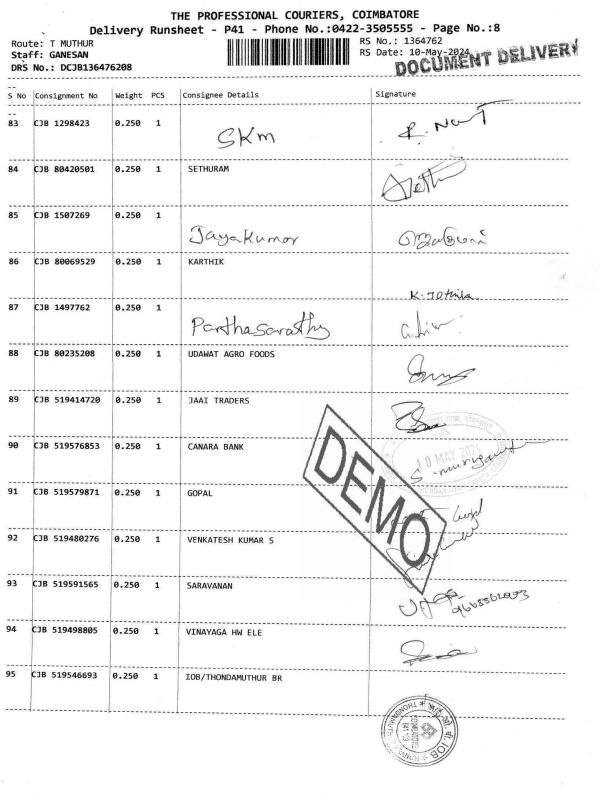 THE PROFESSIONAL COURIERS, COIMBATORE
Delivery Runsheet - P41 - Phone No.:0422-3505555 - Page No.:8
Route: T MUTHUR RS No.: 1364762
Staff: GANESAN RS Date: 10-May-2024
DRS No.: DCJB136476208 DOCUMENT DELIVERY
S No Consignment No Weight PCS Consignee Details Signature
83 CJB 1298423 0.250 1 SKM
84 CJB 80420501 0.250 1 SETHURAM
85 CJB 1507269 0.250 1 Jayakumar
86 CJB 80069529 0.250 1 KARTHIK
87 CJB 1497762 0.250 1 Parthasarathy
88 CJB 80235208 0.250 1 UDAWAT AGRO FOODS
89 CJB 519414720 0.250 1 JAAI TRADERS
90 CJB 519576853 0.250 1 CANARA BANK
10 MAY 2024
91 CJB 519579871 0.250 1 GOPAL
DEMO
92 CJB 519480276 0.250 1 VENKATESH KUMAR S
93 CJB 519591565 0.250 1 SARAVANAN
94 CJB 519498805 0.250 1 VINAYAGA HW ELE
95 CJB 519546693 0.250 1 IOB/THONDAMUTHUR BR
IOB